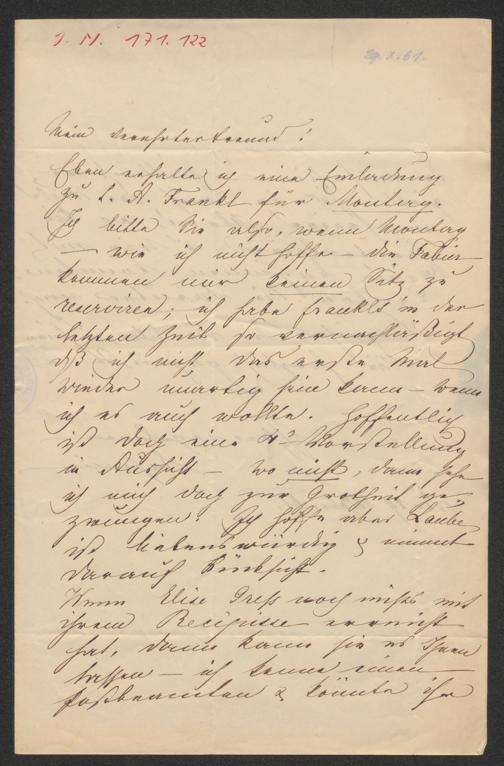 I. N. 171.122
29.X.61.
Mein verehrter Freund!
Eben erhalte ich eine Einladung
zu L. A. Frankl für Montag.
Ich bitte Sie also, wenn Montag
— wie ich nicht hoffe — die Fabier
kommen mir keinen Sitz zu
reserviren; ich habe Frankls in der
letzten Zeit so vernachläßigt
daß ich nicht das erste Mal
wieder unartig sein kann — wenn
ich es auch wollte. Hoffentlich
ist doch eine 4te Vorstellung
in Aussicht — wo nicht, dann sehe
ich mich doch zur Grobheit ge-
zwungen. Ich hoffe aber Laube
ist liebenswürdig & nimmt
darauf Rücksicht.
Wenn Elise noch nichts mit
ihrem Recepisse erreicht
hat, dann kann sie es Ihnen
lassen — ich kenne einen
Postbeamten & könnte ihr